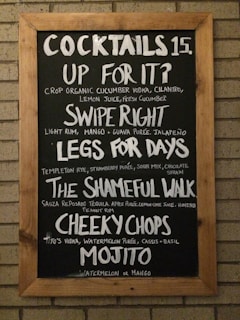 COCKTAILS 15.
UP FOR IT?
CROP ORGANIC CUCUMBER VODKA, CILANTRO,
LEMON JUICE, FRESH CUCUMBER
SWIPE RIGHT
LIGHT RUM, MANGO + GUAVA PURÉE, JALAPEÑO
LEGS FOR DAYS
TEMPLETON RYE, STRAWBERRY PURÉE, SOUR MIX, CHOCOLATE
THE SHAMEFUL WALK
SAUZA REPOSADO TEQUILA, APPLE PURÉE, LEMON JUICE
CHEEKY CHOPS
VODKA, WATERMELON PURÉE, CASSIS + BASIL
MOJITO
WATERMELON OR MANGO